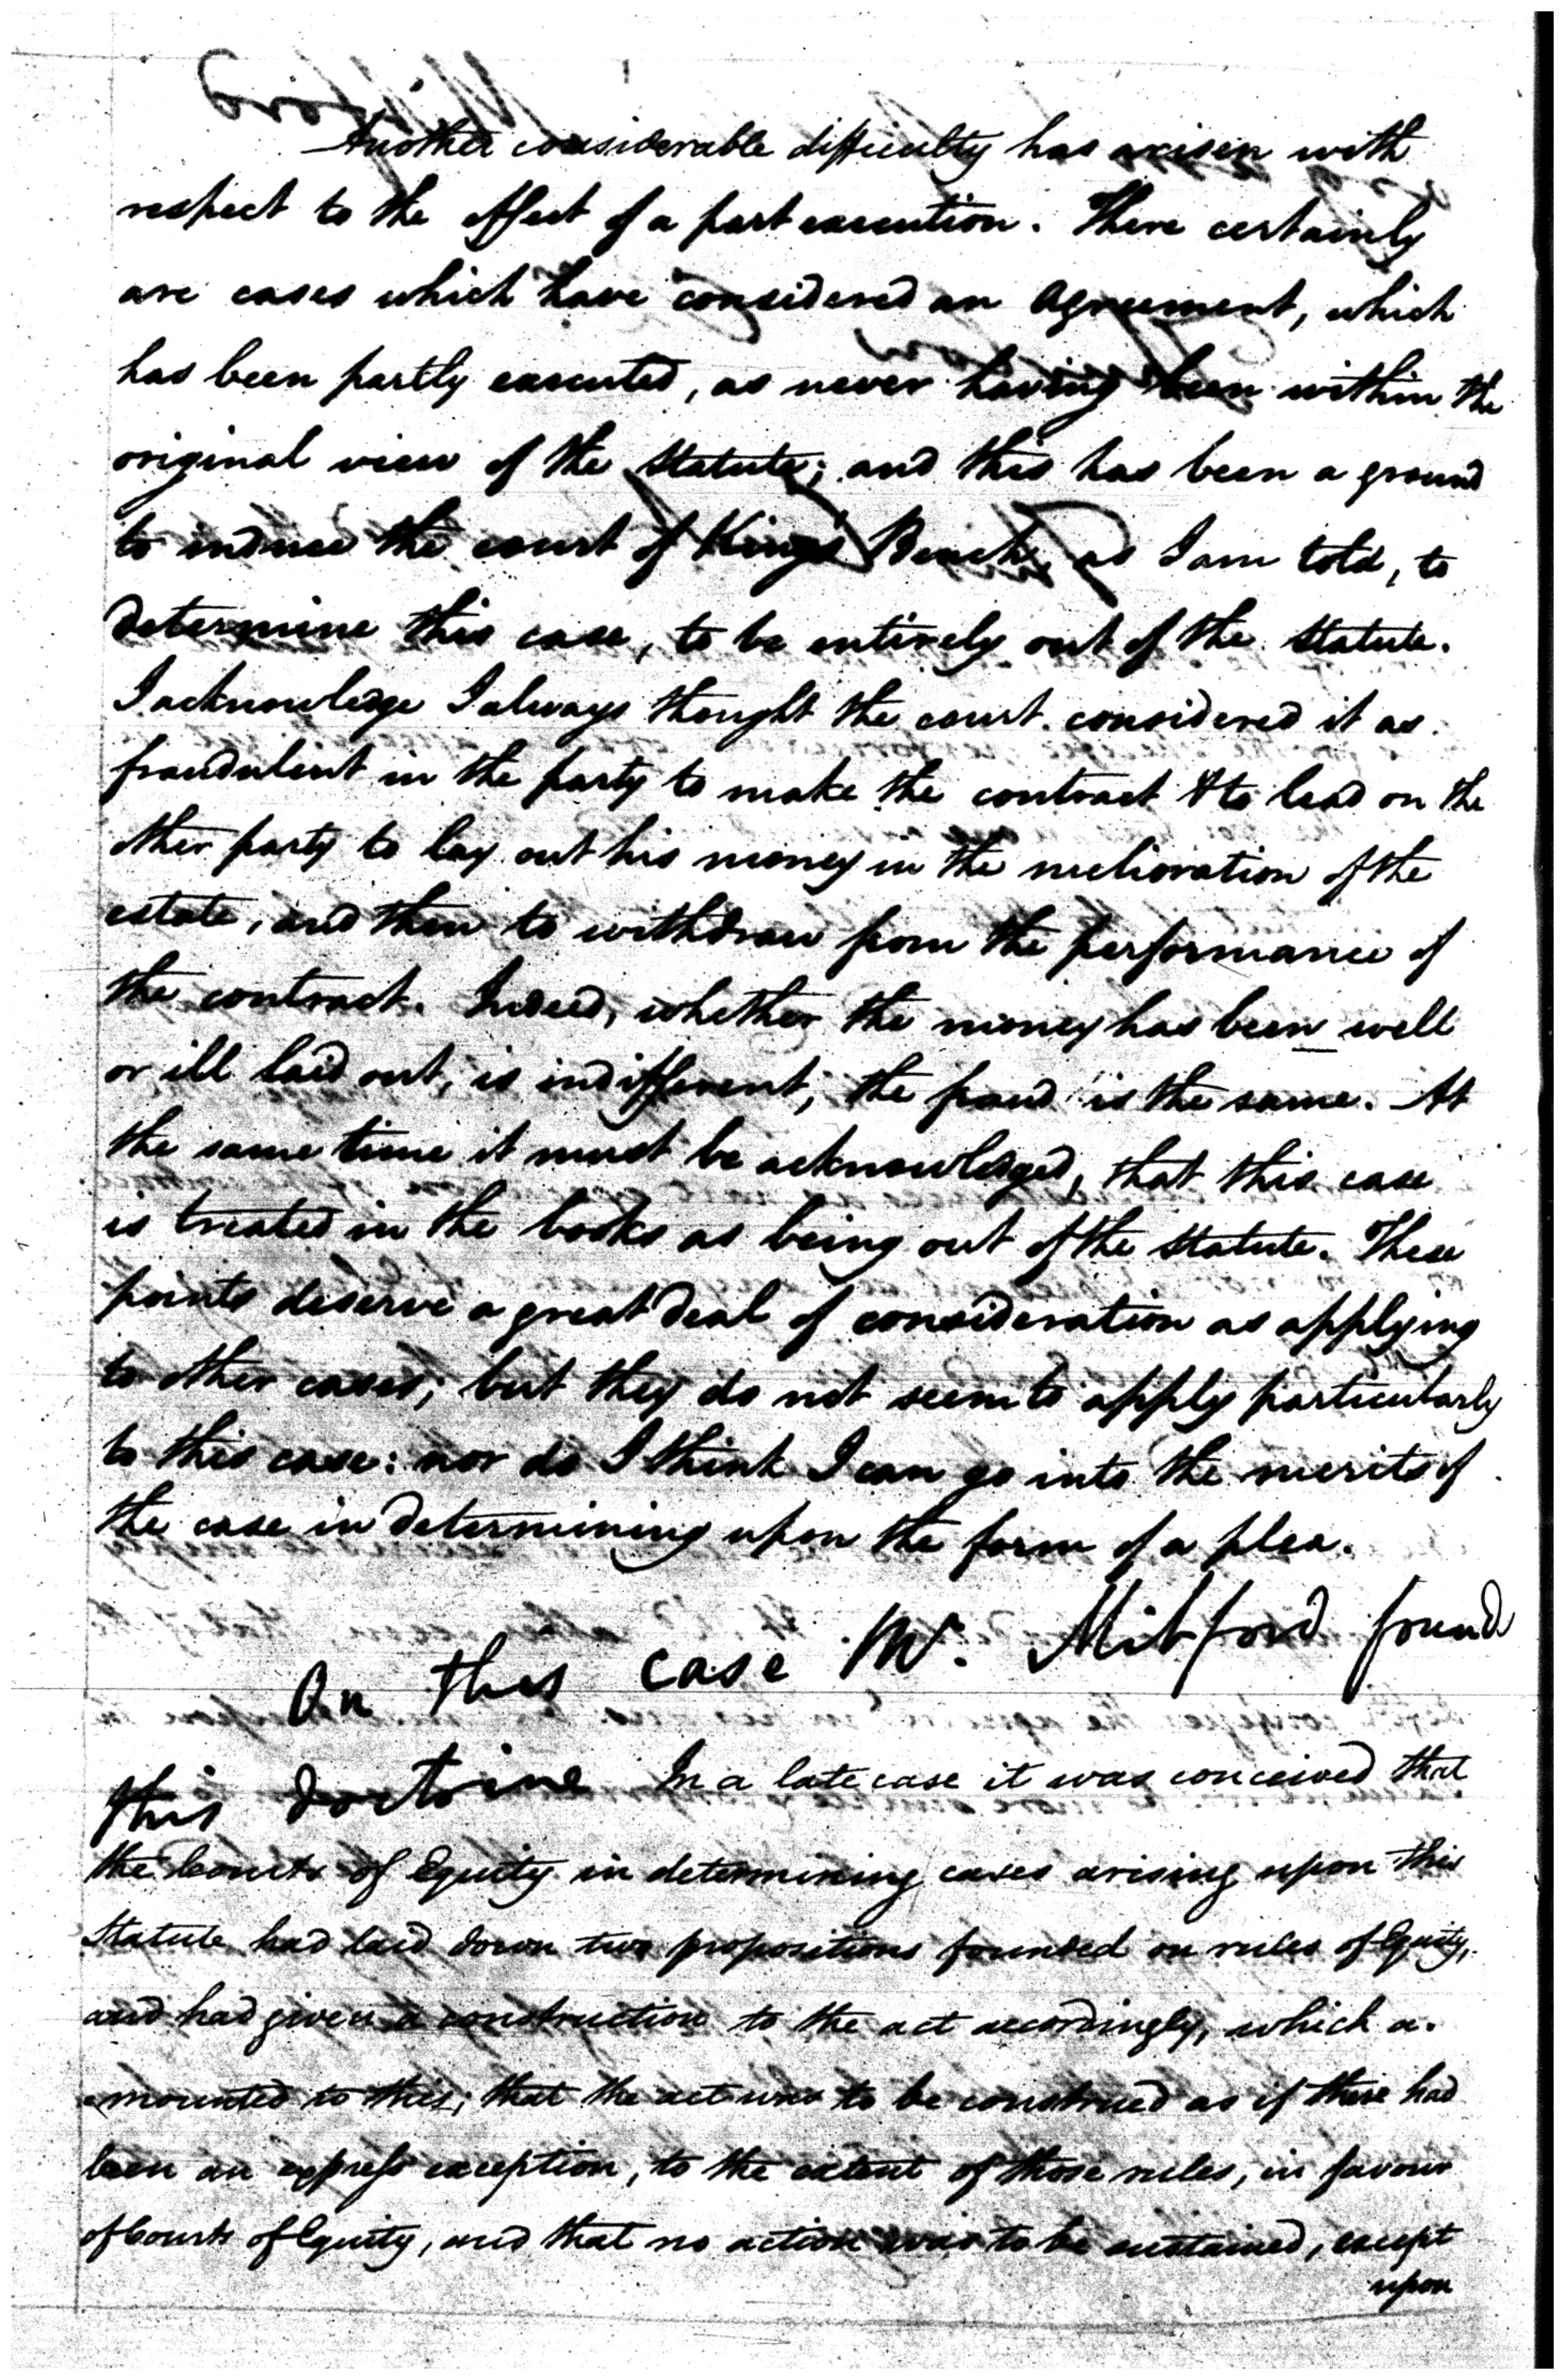 Another considerable difficulty has arisen with
respect to the effect of a part execution. There certainly
are cases which have considered an Agreement, which
has been partly executed, as never having been within the
original view of the statute; and this has been a ground
to induce the court of King's Bench, as I am told, to
determine this case, to be entirely out of the statute.
I acknowledge I always thought the court considered it as
fraudulent in the party to make the contract & to lead on the
other party to lay out his money in the melioration of the
estate, and then to withdraw from the performance of
the contract. Indeed, whether the money has been well
or ill laid out, is indifferent; the fraud is the same. At
the same time it must be acknowledged, that this case
is treated in the books as being out of the statute. These
points deserve a great deal of consideration as applying
to other cases; but they do not seem to apply particularly
to this case: nor do I think I can go into the merits of
the case in determining upon the form of a plea.
On this case Mr. Mitford found
this doctrine In a late case it was conceived that
the Courts of Equity in determining cases arising upon this
Statute had laid down two propositions founded on rules of Equity,
and had given a construction to the act accordingly, which a-
mounted to this; that the act was to be construed as if there had
been an express exception, to the extent of those rules, in favour
of Courts of Equity, and that no action was to be sustained, except
upon